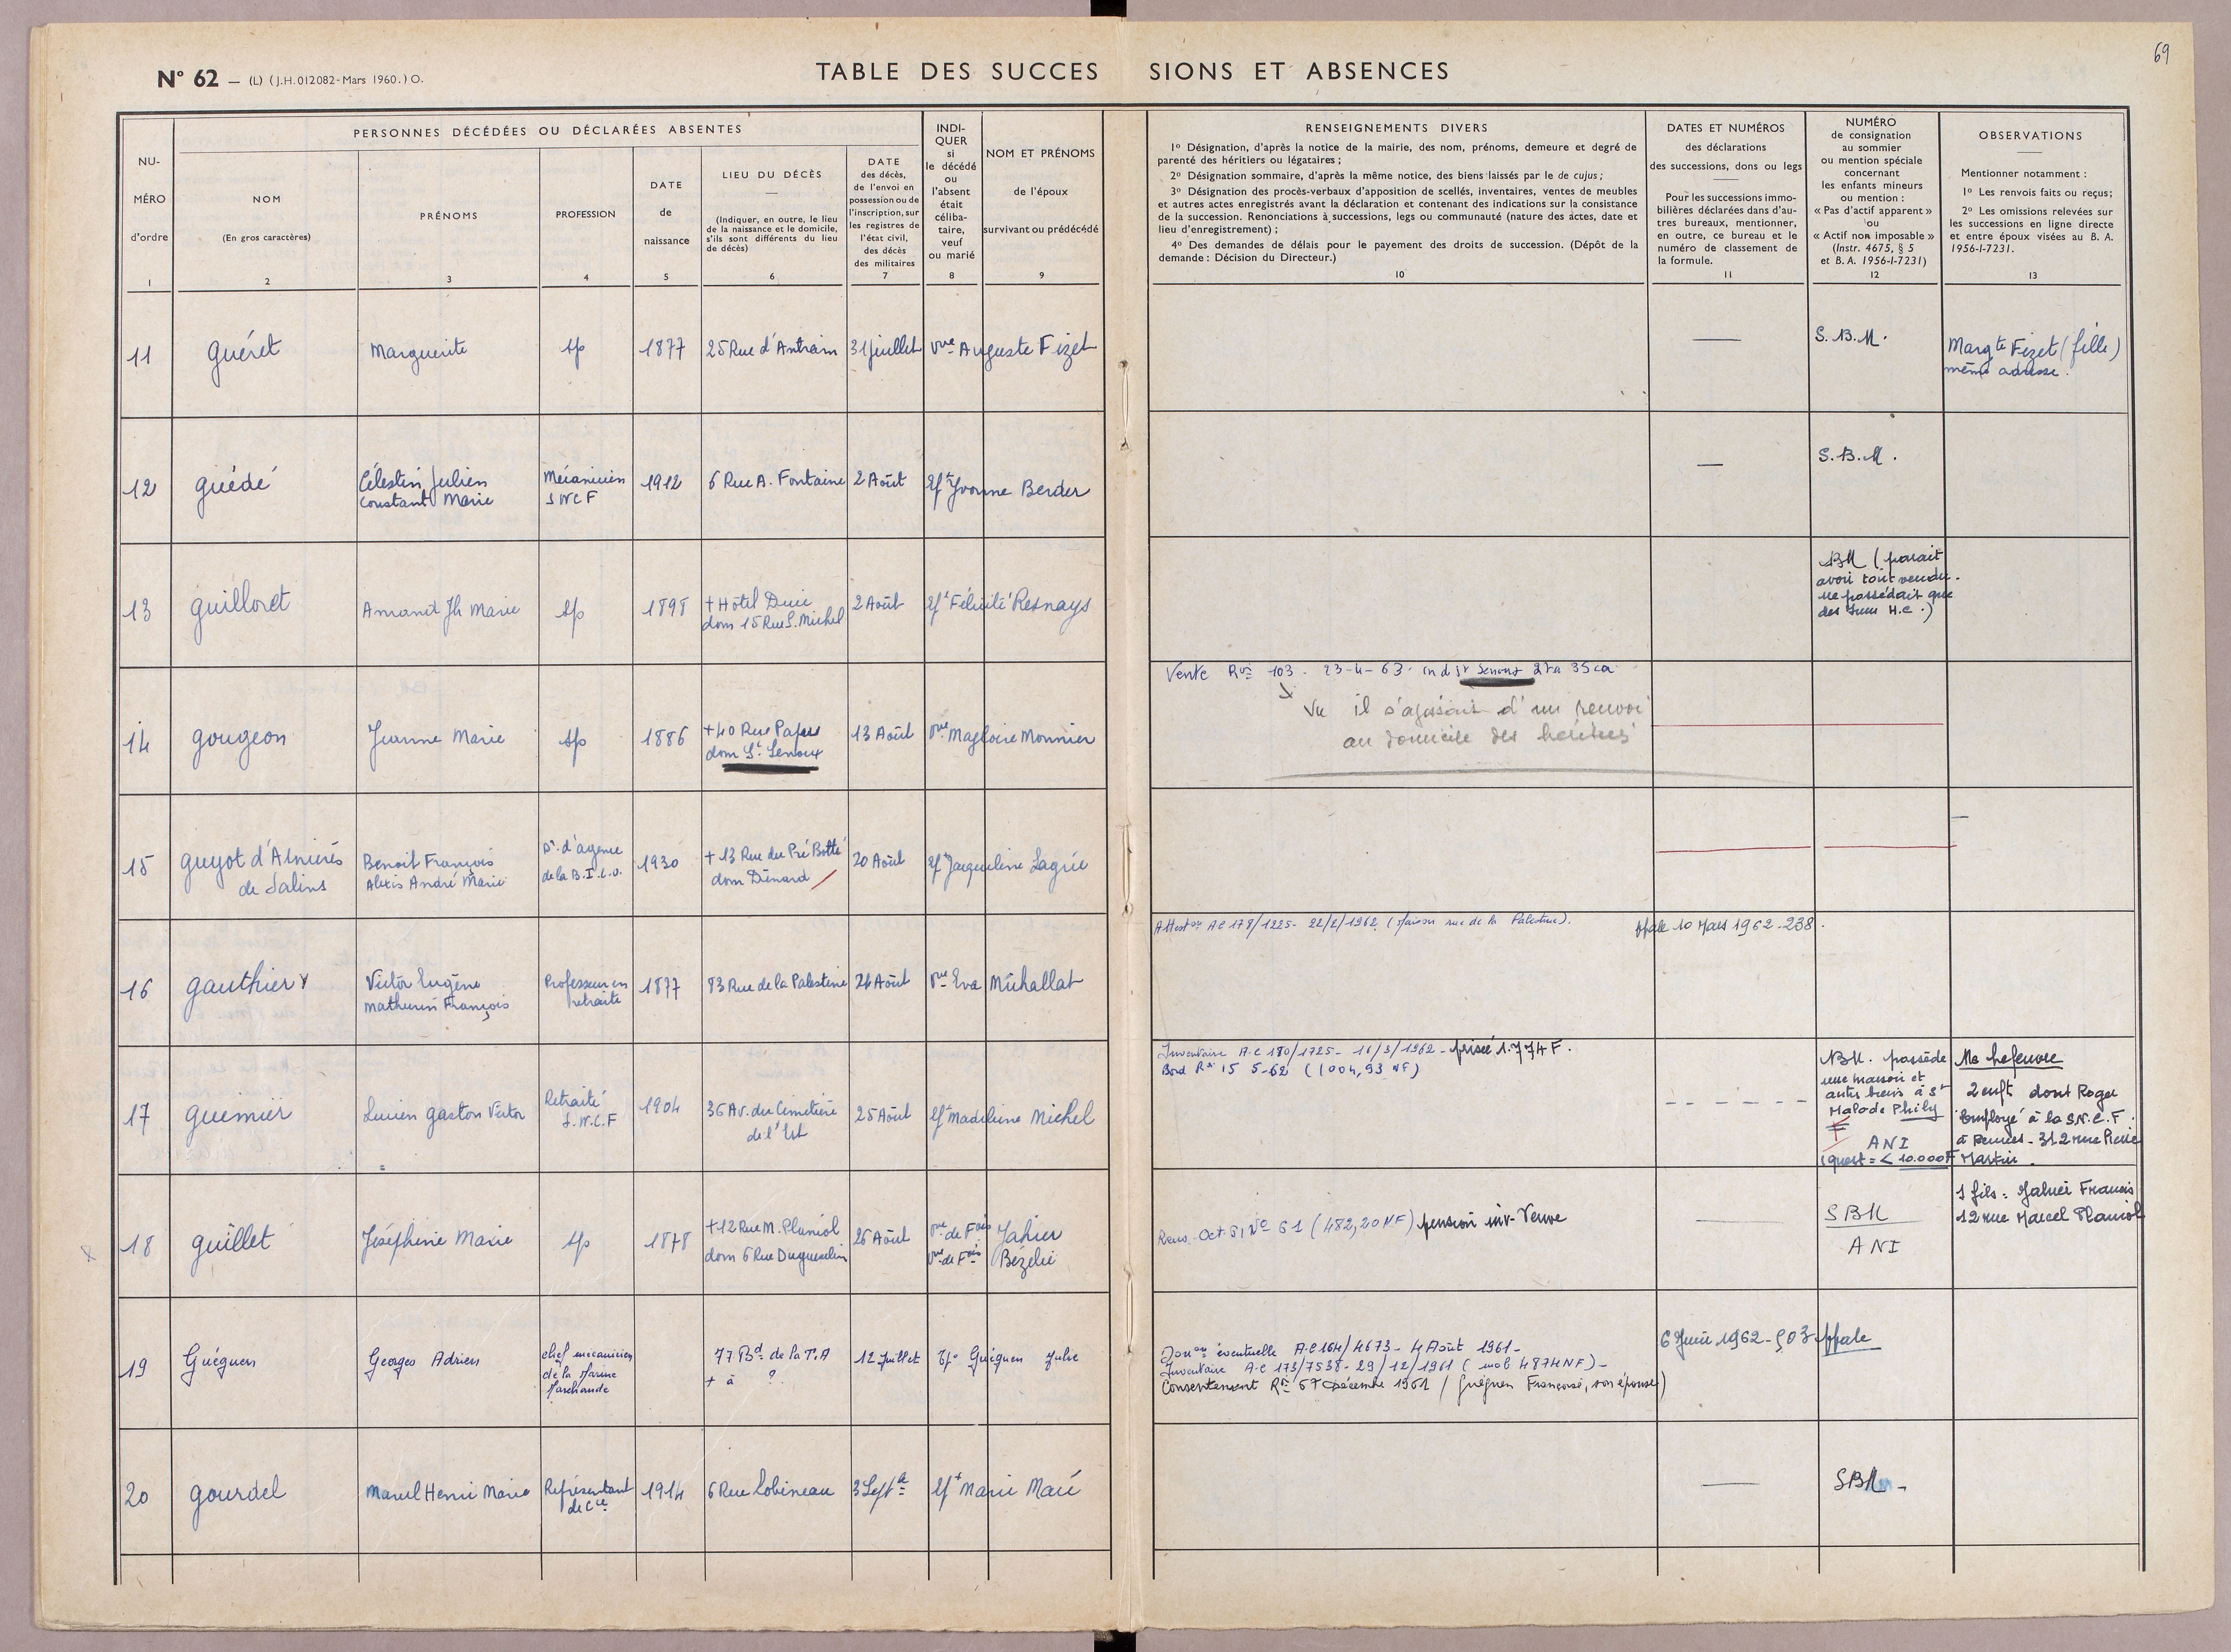 69
N° 62 — (L) (J.H. 012082 - Mars 1960.) O.
TABLE DES SUCCES SIONS ET ABSENCES
NU-
MÉRO
d'ordre
1
PERSONNES DÉCÉDÉES OU DÉCLARÉES ABSENTES
NOM
(En gros caractères)
2
PRÉNOMS
3
PROFESSION
4
DATE
de
naissance
5
LIEU DU DÉCÈS
(Indiquer, en outre, le lieu
de la naissance et le domicile,
s'ils sont différents du lieu
de décès)
6
DATE
des décès,
de l'envoi en
possession ou de
l'inscription, sur
les registres de
l'état civil,
des décès
des militaires
7
INDI-
QUER
si
le décédé
ou
l'absent
était
céliba-
taire,
veuf
ou marié
8
NOM ET PRÉNOMS
de l'époux
survivant ou prédécédé
9
RENSEIGNEMENTS DIVERS
1° Désignation, d'après la notice de la mairie, des nom, prénoms, demeure et degré de
parenté des héritiers ou légataires ;
2° Désignation sommaire, d'après la même notice, des biens laissés par le de cujus ;
3° Désignation des procès-verbaux d'apposition de scellés, inventaires, ventes de meubles
et autres actes enregistrés avant la déclaration et contenant des indications sur la consistance
de la succession. Renonciations à successions, legs ou communauté (nature des actes, date et
lieu d'enregistrement) ;
4° Des demandes de délais pour le payement des droits de succession. (Dépôt de la
demande : Décision du Directeur.)
10
DATES ET NUMÉROS
des déclarations
des successions, dons ou legs
Pour les successions immo-
bilières déclarées dans d'au-
tres bureaux, mentionner,
en outre, ce bureau et le
numéro de classement de
la formule.
11
NUMÉRO
de consignation
au sommier
ou mention spéciale
concernant
les enfants mineurs
ou mention :
« Pas d'actif apparent »
ou
« Actif non imposable »
(Instr. 4675, § 5
et B. A. 1956-I-7231)
12
OBSERVATIONS
Mentionner notamment :
1° Les renvois faits ou reçus ;
2° Les omissions relevées sur
les successions en ligne directe
et entre époux visées au B. A.
1956-I-7231.
13
11 Guéret Marguerite sp 1877 25 Rue d'Antrain 31 juillet vve Auguste Fizet — S.B.M. Margte Fizet (fille)
même adresse.
12 Guédé Célestin Julien
Constant Marie
Mécanicien
SNCF
1912 6 Rue A. Fontaine 2 Août Yvonne Berder — S.B.M.
13 Guilloret Amand Jh Marie sp 1898 + Hôtel Dieu
dom 15 Rue S. Michel
2 Août Félicité Resnays
SBM (parait
avoir tout vendu.
ne possédait que
des H.C.)
14 Gougeon Jeanne Marie sp 1886 + 40 Rue Papu
dom St Senoux
13 Août vve Magloire Monnier
Vente 103. 23-4-63. Senoux 27a 35ca
Vu il s'agissait d'un renvoi
au domicile des héritiers
15 Guyot d'Asnières
de Salins
Benoit François
Alexis André Marie
d'agence
de la B.I.C.O.
1930 + 13 Rue du Pré Botté
dom Dinard
20 Août Jacqueline Lagrée
16 Gauthier Victor Eugène
Mathurin François
Professeur en
retraite
1877 83 Rue de la Palestine 24 Août vve Eva Michallat
Atteston AC 178/1225 - 22/2/1962 (Maison rue de la Palestine). ppale 10 Mars 1962 - 238.
17 Guemier Lucien Gaston Victor Retraité
S.N.C.F
1904 36 Av. du Cimetière
de l'Est
25 Août Madeleine Michel
Inventaire A.C 180/1725 - 16/3/1962 - prisée 1.774 F.
Bord 15 5-62 (1004,93 NF)
NBM. possède
une maison et
autres biens à St
Malo de Phily
ANI
(quest = < 10.000F
Me Lefeuvre
2 enft dont Roger
employé à la S.N.C.F
à Rennes - 312 rue Pierre
Martin.
18 Guillet Joséphine Marie sp 1878 + 12 Rue M. Planiol
dom 6 Rue Duguesclin
26 Août vve de Fois Jahier
vve de Fois Bézelie
Oct. 61 N° 61 (482,20 NF) pension inv. Veuve
—
SBM
ANI
1 fils : Jahier Francis
12 rue Marcel Planiol
19 Guéguen Georges Adrien chef mécanicien
de la Marine
Marchande
77 Bd de la T.A
+ à ?
12 Juillet Guéguen
éventuelle A.C 164/4673 - 4 Août 1961 -
Inventaire A.C 173/7538 - 29/12/1961 (mob 4874 NF) -
Consentement Décembre 1961 (Guéguen Françoise, son épouse)
6 Juin 1962 - 503 ppale
20 Gourdel Marcel Henri Marie Représentant
de Cce
1914 6 Rue Lobineau 3 Septe Marie Macé
— SBM -